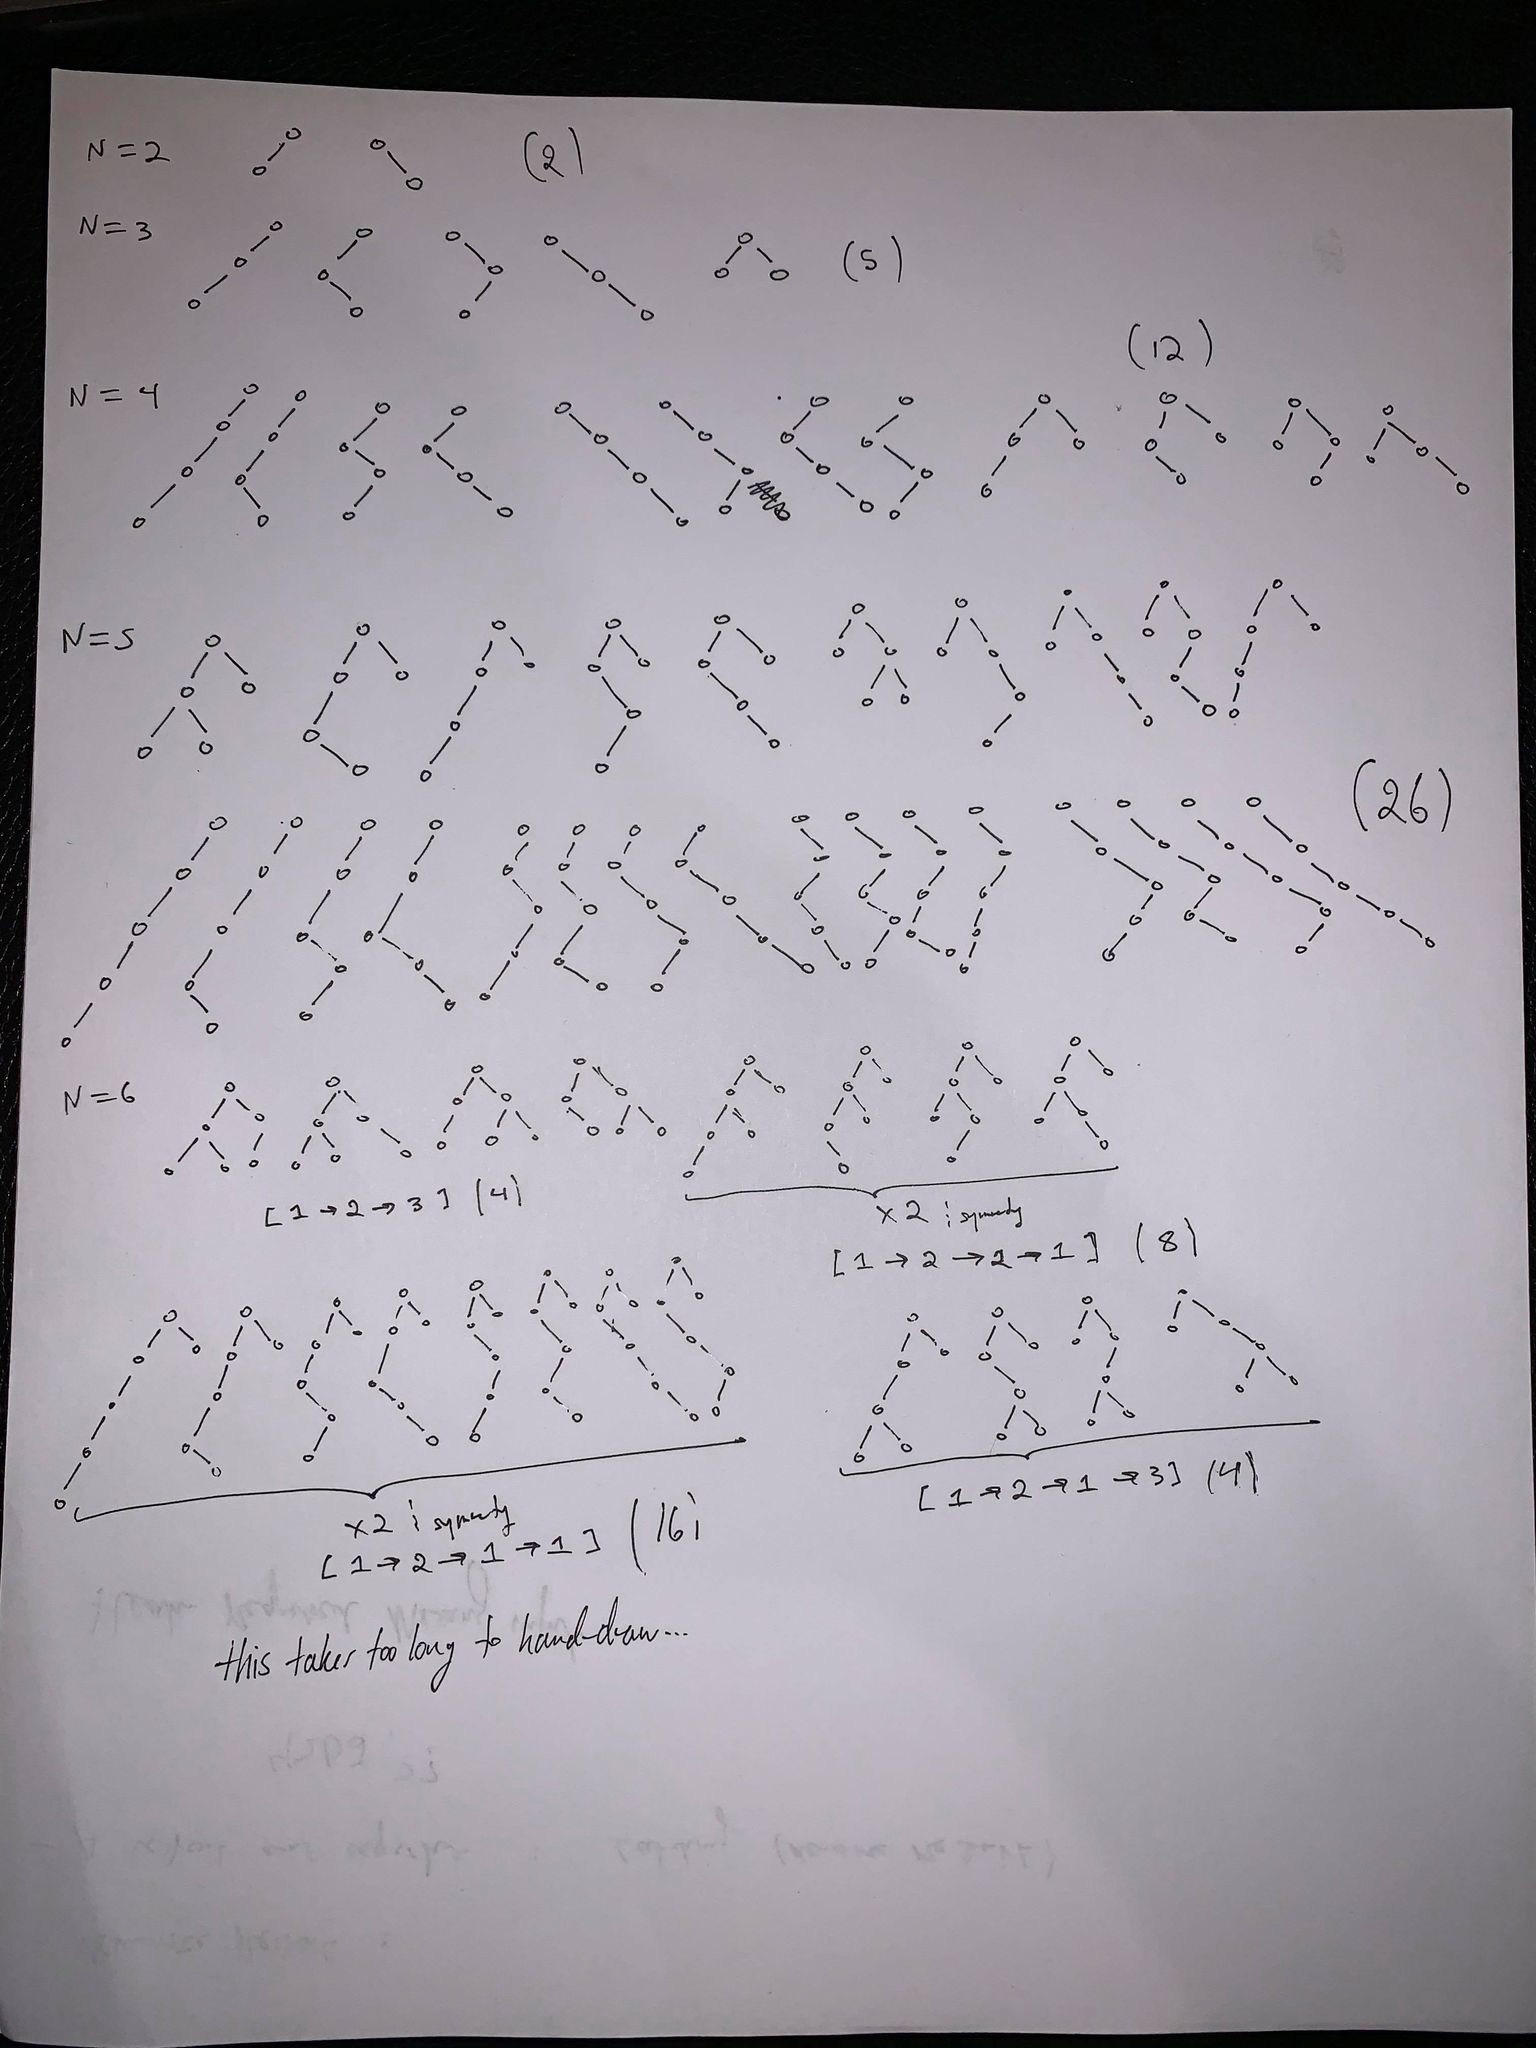 N=2 (2)
N=3 (5)
(12)
N=4
N=5
(26)
N=6
[1→2→3] (4)
x2 ; symmetry
[1→2→2→1] (8)
x2 ; symmetry
[1→2→1→1] (16)
[1→2→1→3] (4)
this takes too long to hand-draw...